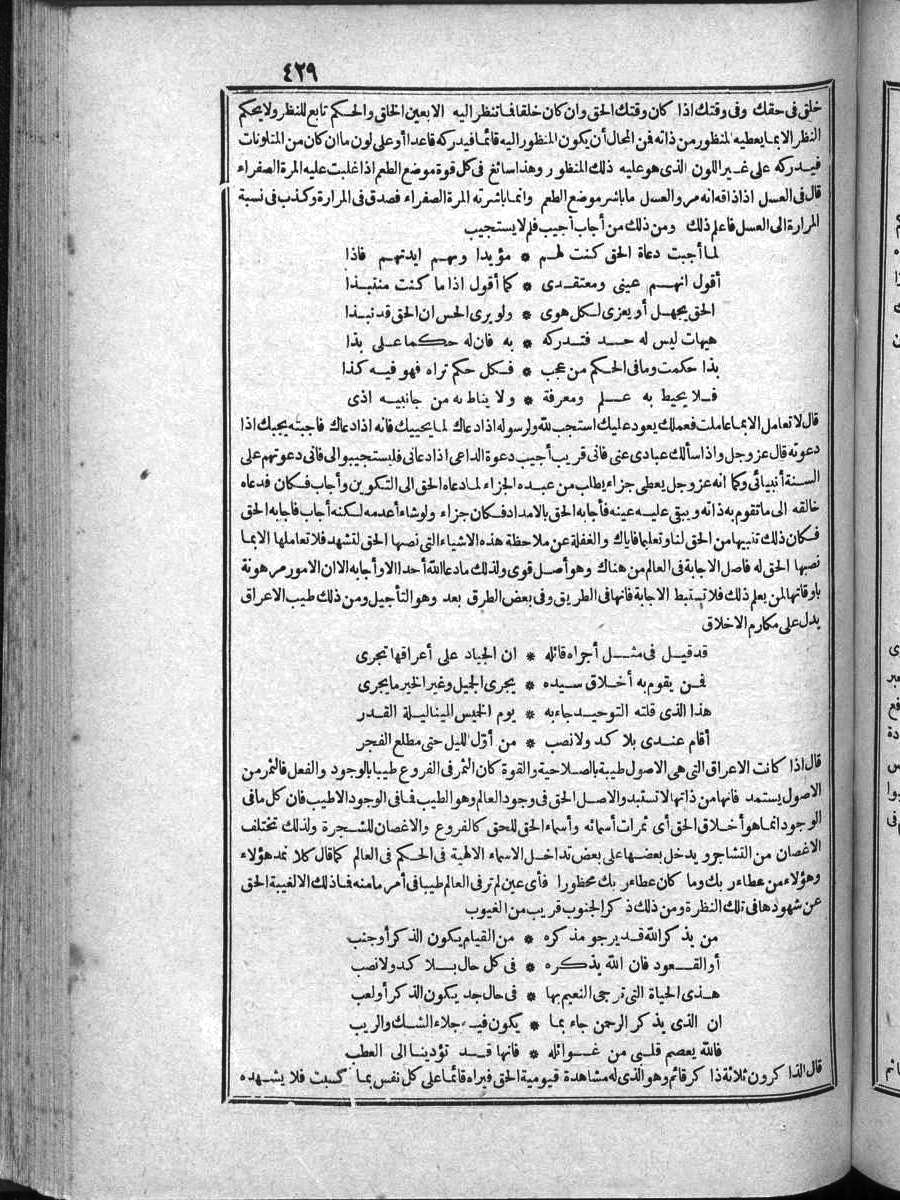 ٤٢٩
خلق فى حقك وفى وقتك اذا كان وقتك الحق وان كان خلقا فما تنظر اليه الا بعين الخلق والحكم تابع للنظر ولا يحكم
النظر الا بما يعطيه المنظور من ذاته فمن المحال أن يكون المنظور اليه قائما فيدركه قاعدا أو على لون ما ان كان من المتلونات
فيدركه على غير اللون الذى هو عليه ذلك المنظور وهذا سائغ فى كل قوة موضع الطعم اذا غلبت عليه المرة الصفراء
قال فى العسل اذا ذاقه انه مر والعسل ما باشر موضع الطعم وانما باشرته المرة الصفراء فصدق فى المرارة وكذب فى نسبة
المرارة الى العسل فاعلم ذلك ومن ذلك من أجاب أجيب فلم لا يستجيب
لما أجبت دعاة الحق كنت لهم * مؤيدا وبهم ايدتهم فاذا
أقول انهم عينى ومعتقدى * كما أقول اذا ما كنت منتبذا
الحق يجهل أو يعزى لكل هوى * ولو يرى الحس ان الحق قد نبذا
هيهات ليس له حد فتدركه * به فان له حكما على بذا
بذا حكمت وما فى الحكم من عجب * فكل حكم تراه فهو فيه كذا
فلا يحيط به علم ومعرفة * ولا يناط به من جانبيه اذى
قال لا تعامل الا بما عاملت فعملك يعود عليك استجب لله ولرسوله اذا دعاك لما يحييك فانه اذا دعاك فاجبته يجبك اذا
دعوته قال عز وجل واذا سألك عبادى عنى فانى قريب أجيب دعوة الداعى اذا دعانى فليستجيبوا لى فانى دعوتهم على
السنة أنبيائى وكما انه عز وجل يعطى جزاء يطلب من عبده الجزاء لما دعاه الحق الى التكوين وأجاب فكان فدعاه
خالقه الى ما تقوم به ذاته ويبقى عليه عينه فأجابه الحق بالامداد فكان جزاء ولو شاء أعدمه لكنه أجاب فأجابه الحق
فكان ذلك تنبيها من الحق لنا وتعليما فاياك والغفلة عن ملاحظة هذه الاشياء التى نصبها الحق لتشهد فلا تعاملها الا بما
نصبها الحق له فاصل الاجابة فى العالم من هناك وهو أصل قوى ولذلك ما دعا الله أحدا الا وأجابه الا ان الامور مرهونة
باوقاتها لمن يعلم ذلك فلا تستبط الاجابة فانها فى الطريق وفى بعض الطرق بعد وهو التأجيل ومن ذلك طيب الاعراق
يدل على مكارم الاخلاق
قد قيل فى مثل أجراه قائله * ان الجياد على أعراقها تجرى
فمن يقوم به أخلاق سيده * يجرى الجميل وغير الخير ما يجرى
هذا الذى قلته التوحيد جاء به * يوم الخميس الينا ليلة القدر
أقام عندى بلا كد ولا نصب * من أول الليل حتى مطلع الفجر
قال اذا كانت الاعراق التى هى الاصول طيبة بالصلاحية والقوة كان الثمر فى الفروع طيبا بالوجود والفعل فالثمر من
الاصول يستمد فانها من ذاتها لا تستبد والاصل الحق فى وجود العالم وهو الطيب فما فى الوجود الا طيب فان كل ما فى
الوجود انما هو أخلاق الحق أى ثمرات أسمائه وأسماء الحق للحق كالفروع والاغصان للشجرة ولذلك تختلف
الاغصان من التشاجر ويدخل بعضها على بعض تداخل الاسماء الالهية فى الحكم فى العالم كما قال كلا نمد هؤلاء
وهؤلاء من عطاء ربك وما كان عطاء ربك محظورا فأى عين لم تر فى العالم طيبا فى أمر ما منه فما ذلك الا لغيبة الحق
عن شهودها فى تلك النظرة ومن ذلك ذكر الجنوب قريب من الغيوب
من يذكر الله قد يرجو مذكره * من القيام يكون الذكر أو جنب
أو القعود فان الله يذكره * فى كل حال بلا كد ولا نصب
هذى الحياة التى ترجى النعيم بها * فى حال جد يكون الذكر أو لعب
ان الذى يذكر الرحمن جاء بما * يكون فيه جلاء الشك والريب
فالله يعصم قلبى من غوائله * فانها قد تؤدينا الى العطب
قال الذاكرون ثلاثة ذاكر قائم وهو الذى له مشاهدة قيومية الحق فيراه قائما على كل نفس بما كسبت فلا يشهده